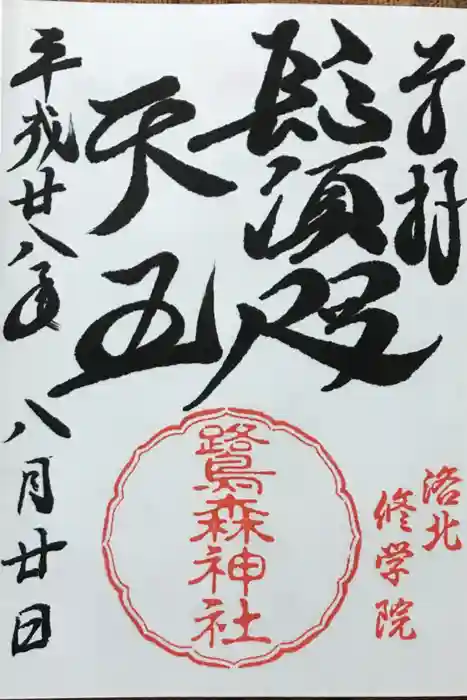 奉拝
鬚咫
天王
平成廿八年 八月廿日
洛北
修学院
鷺森神社